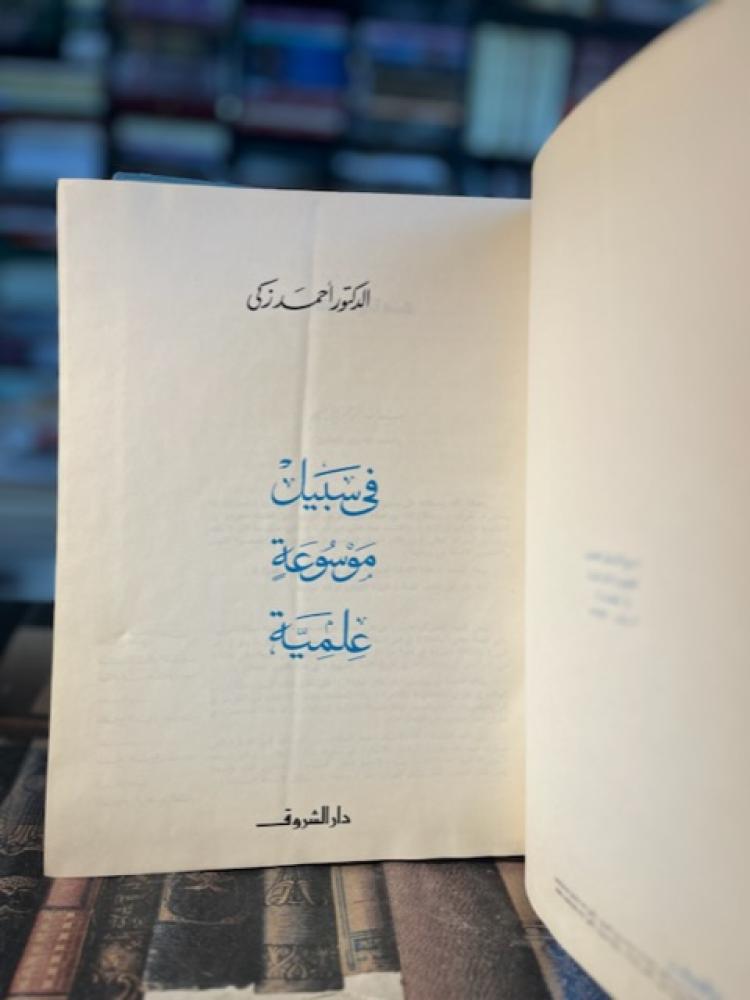 الدكتور أحمد زكى
فى سَبَيل
مَوْسُوعَةٍ
عِلمِيَّة
دار الشروق